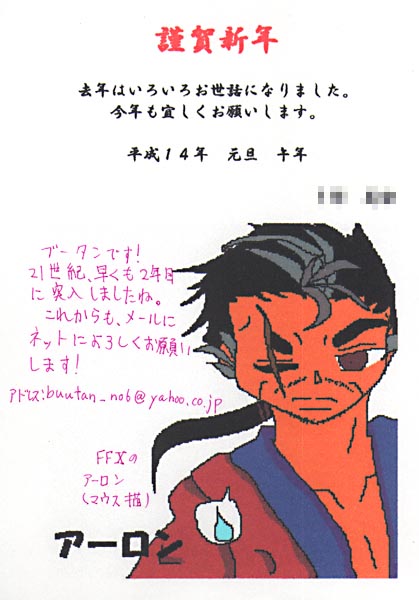 謹賀新年
去年はいろいろお世話になりました。
今年も宜しくお願いします。
平成１４年　元旦　午年
ブータンです!
21世紀、早くも2年目
に突入しましたね。
これからも、メールに
ネットによろしくお願い
します!
アドレス:buutan_no6@yahoo.co.jp
FFXの
アーロン
(マウス描)
アーロン